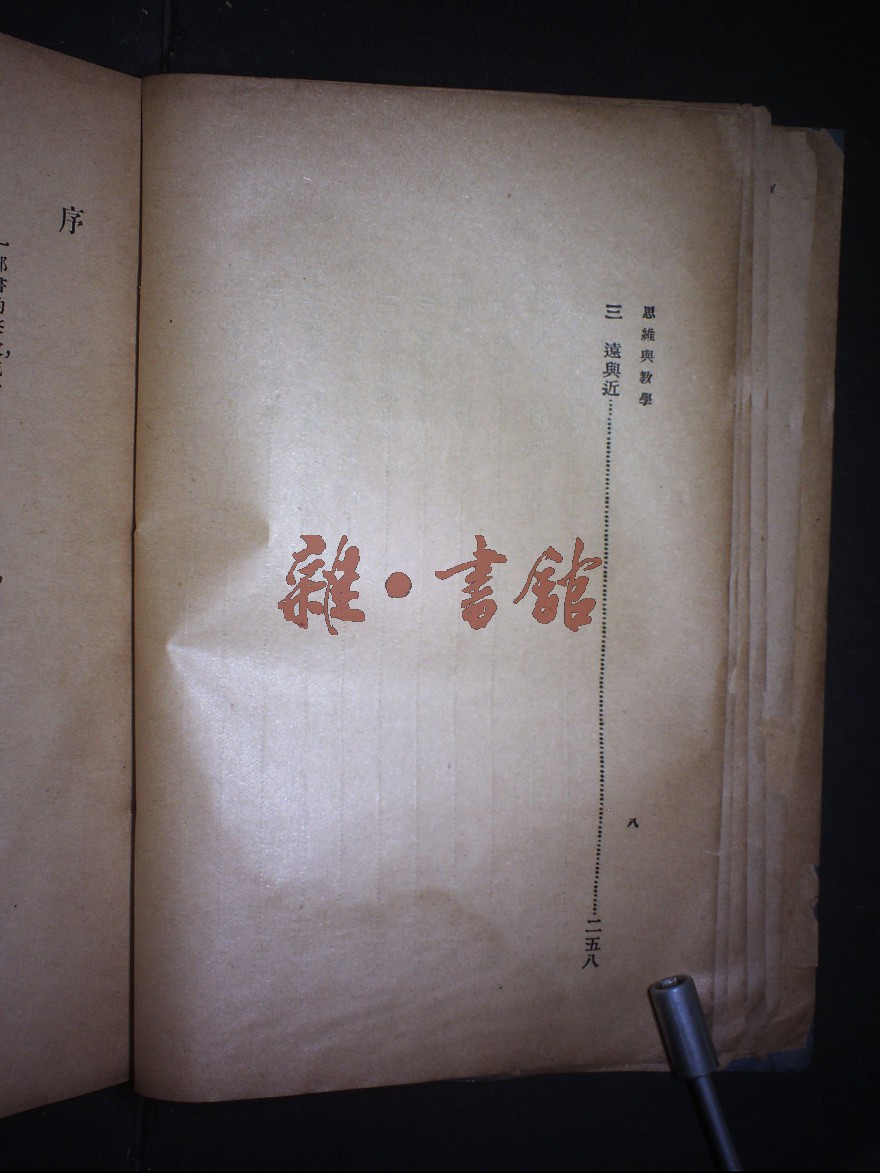 思維與教學
三　遠與近……二五八
八
雜・書館
序